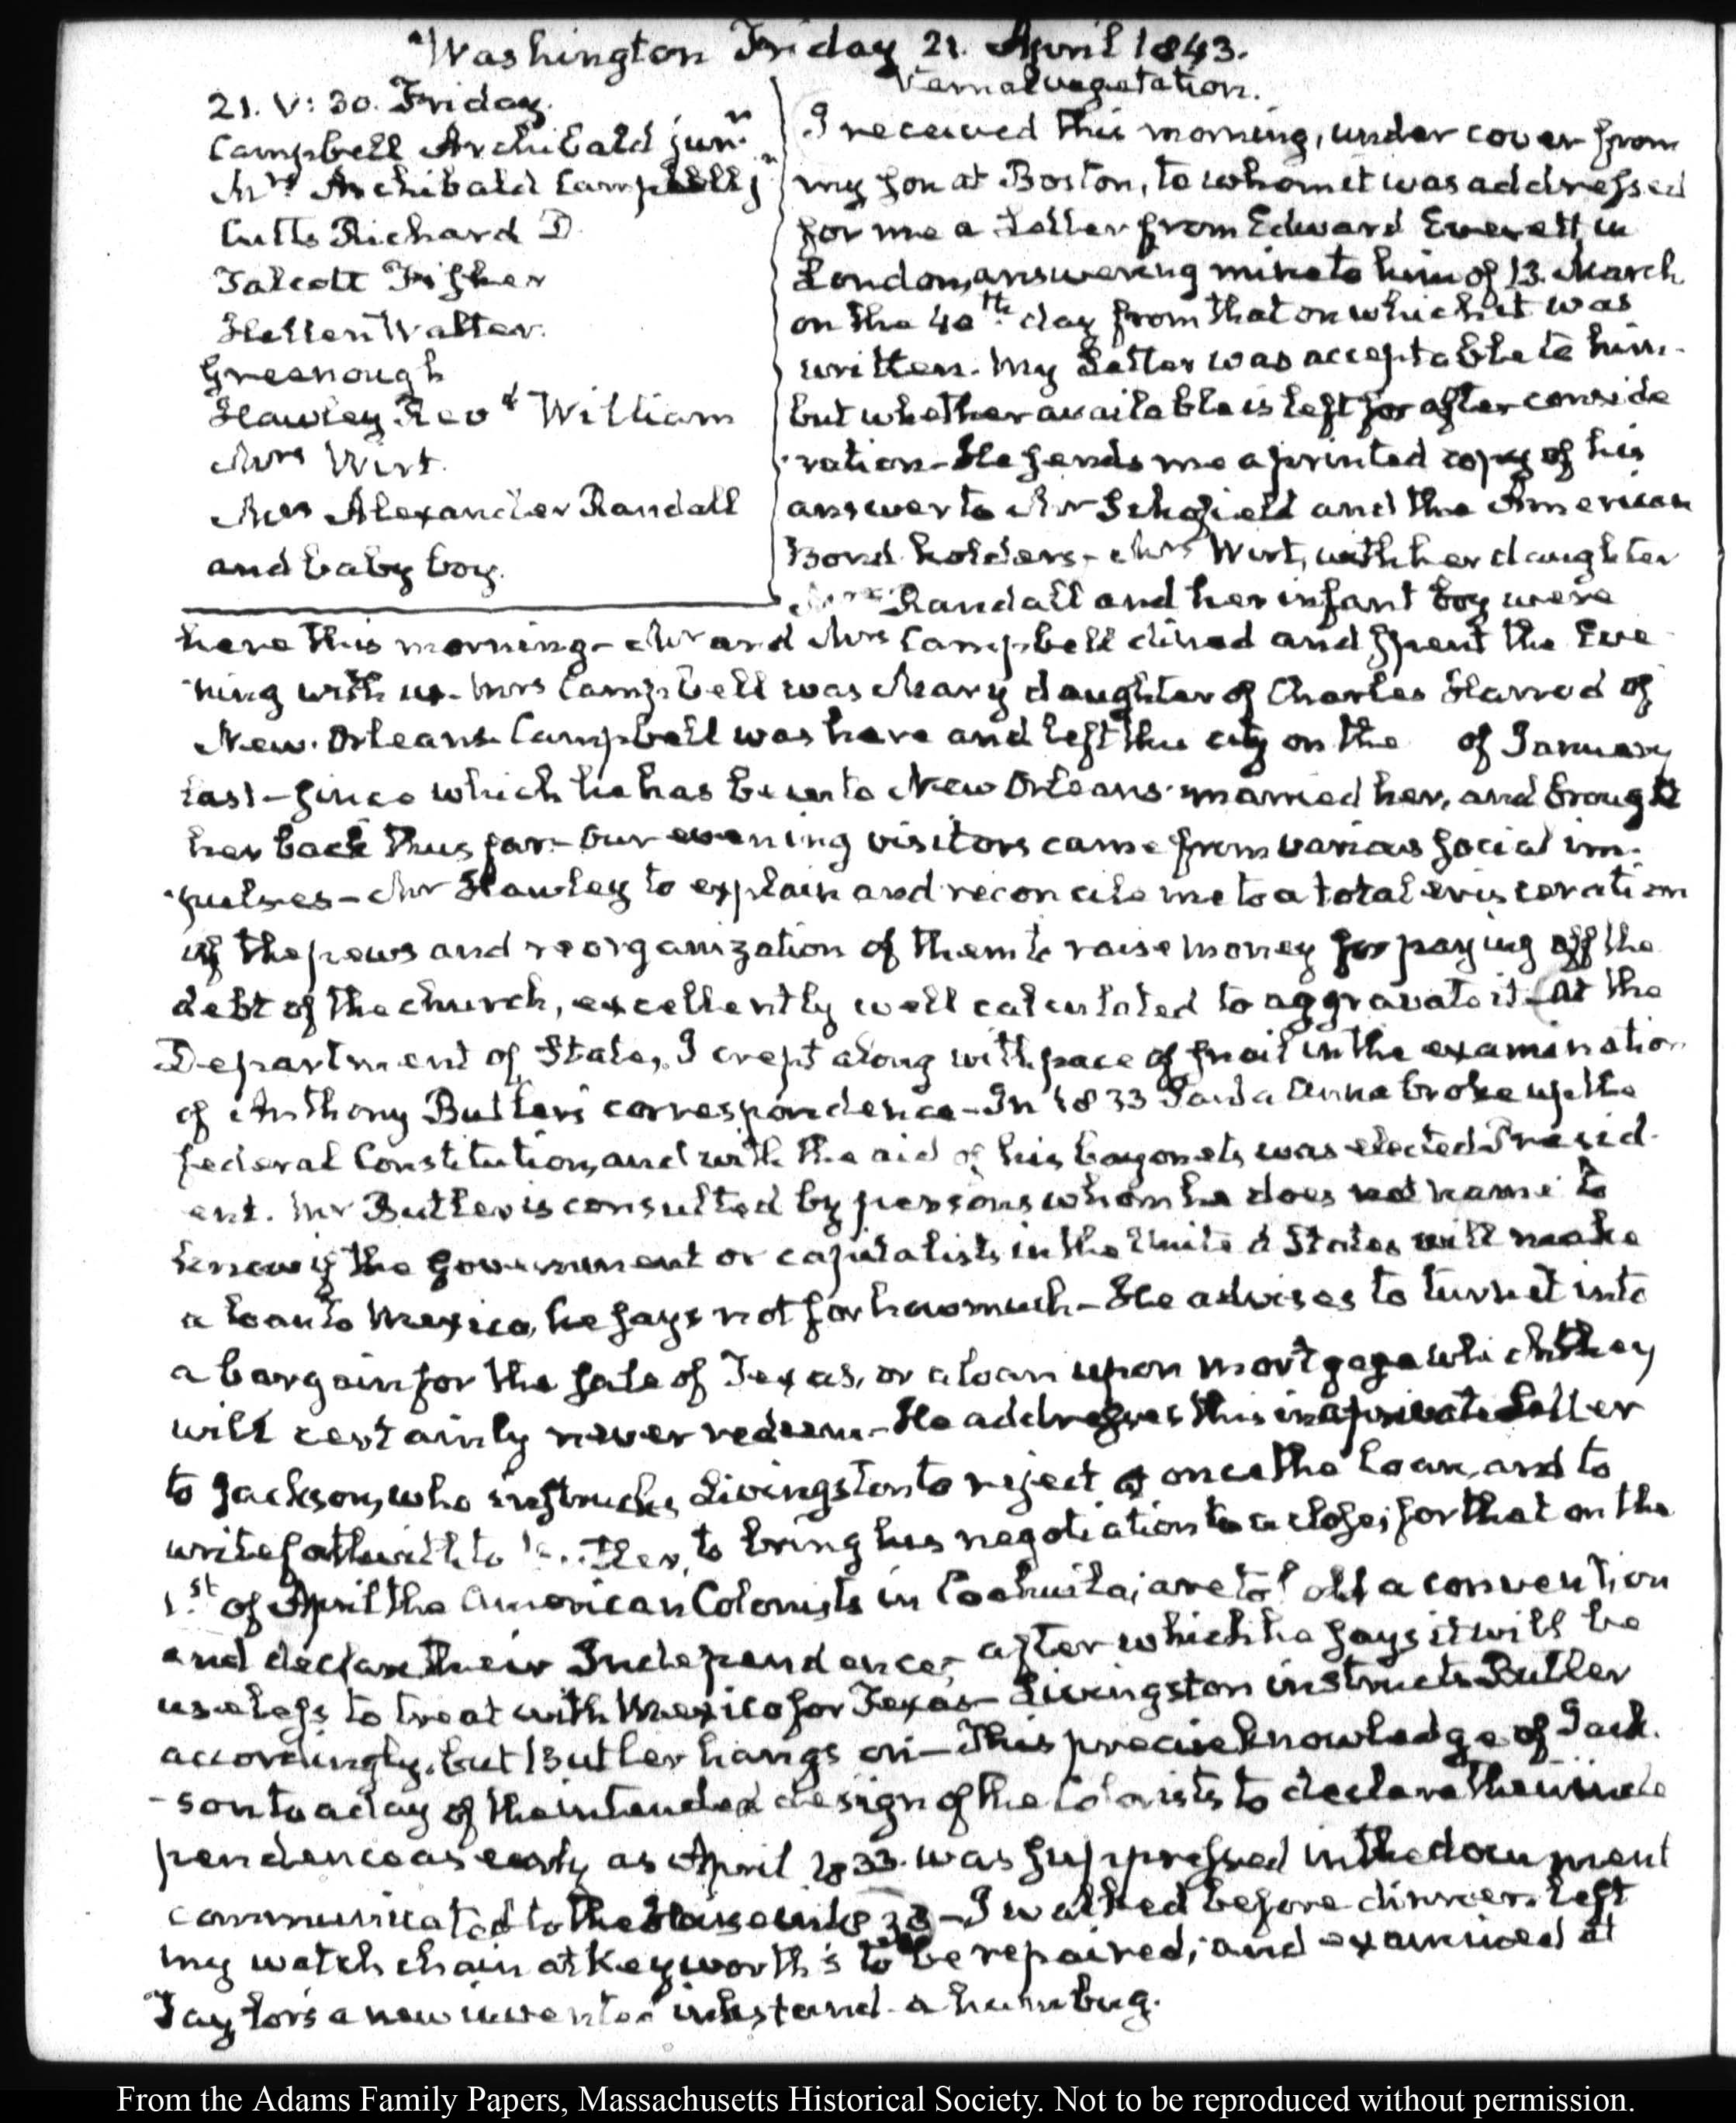 Washington Friday 21. April 1843.
21. V: 30. Friday.
Campbell Archibald junr.
Mrs Archibald Campbell jr
Cutts Richard D.
Talcott Fisher
Hellen Walter.
Greenough
Hawley Revd William
Mrs Wirt.
Mrs Alexander Randall
and baby boy.
Vernal vegetation.
I received this morning, under cover from
my son at Boston, to whom it was addressed
for me a Letter from Edward Everett in
London, answering mine to him of 13. March
on the 40th. day from that on which it was
written. My Letter was acceptable to him.
but whether available is left for after conside
ration- He sends me a printed copy of his
answer to Mr and the American
Bond holders- Mrs Wirt, with her daughter
Mrs Randall and her infant boy were
here this morning- Mr and Mrs Campbell dined and spent the Eve
ning with us. Mrs Campbell was Mary daughter of Charles Harrod of
New-Orleans. Campbell was here and left this city on the of January
last- since which he has been to New Orleans married her, and brought
her back thus far- Our evening visitors came from various social im-
pulses- Mr Hawley to explain and reconcile me to a total evisceration
of the pews and reorganization of them to raise money for paying off the
debt of the church, excellently well calculated to aggravate it- At the
Department of State, I crept along with pace of snail in the examination
of Anthony Butler's correspondence- In 1833 Santa Anna broke up the
federal Constitution, and with the aid of his bayonets was elected Presid-
ent. Mr Butler is consulted by persons whom he does not name to
know if the Government or capitalists in the United States will make
a loan to Mexico, he says not for how much- He advises to turn it into
a bargain for the sale of Texas, or a loan upon mortgage which they
will certainly never redeem- He addresses this in a private Letter
to Jackson, who instructs Livingston to reject at once the loan, and to
write forthwith to Butler, to bring his negotiation to a close; for that on the
1.st of April the American Colonists in Coahuila, are to hold a convention
and declare their Independence, after which he says it will be
useless to treat with Mexico for Texas- Livingston instructs Butler
accordingly, but Butler hangs on- This precise knowledge of Jack-
-son to a day of the intended design of the Colonists to declare their inde
pendence as early as April 1833. was suppressed in the document
communicated to the House in 1838- I walked before dinner. left
my watch chain at Keyworth's to be repaired, and examined at
Taylor's a new invented inkstand- a humbug.
From the Adams Family Papers, Massachusetts Historical Society. Not to be reproduced without permission.